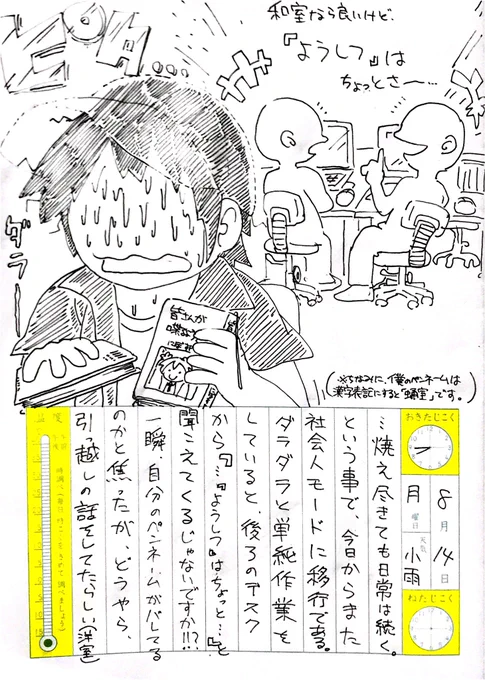 和室なら良いけど、
『ようしつ』は
ちょっとさー…
ギクッ
ダラー
皆さんが
(※ちなみに、僕のペンネームは
漢字表記にすると「蛹室」です。)
おきたじこく
8月14日
月曜日
天気 小雨
ねたじこく
…焼え尽きても日常は続く。
という事で、今日からまた
社会人モードに移行である。
ダラダラと単純作業を
していると、後ろのデスク
から『…『ようしつ』はちょっと…』と
聞こえてくるじゃないですか!!?
一瞬、自分のペンネームがバレてる
のかと焦ったが、どうやら、
引っ越しの話をしてたらしい(洋室)
温度